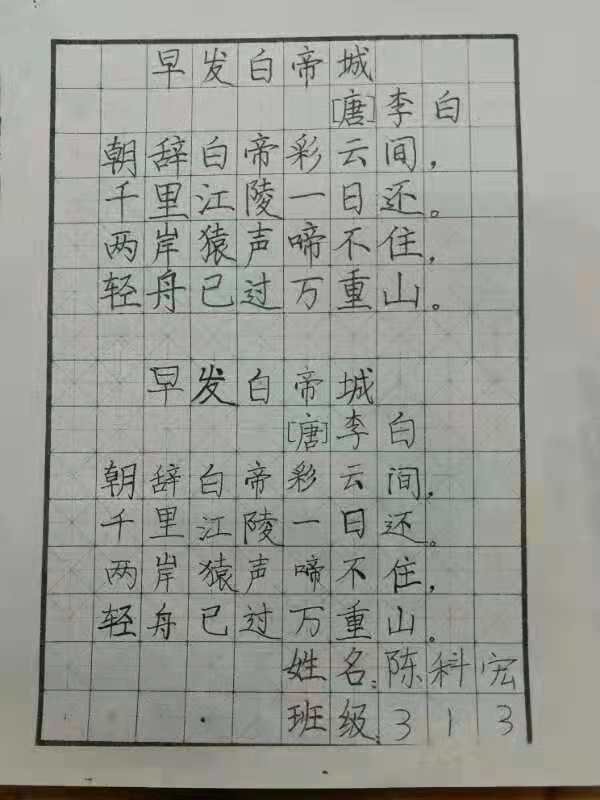 早发白帝城
[唐]李白
朝辞白帝彩云间，
千里江陵一日还。
两岸猿声啼不住，
轻舟已过万重山。
早发白帝城
[唐]李白
朝辞白帝彩云间，
千里江陵一日还。
两岸猿声啼不住，
轻舟已过万重山。
姓名：陈科宏
班级：313